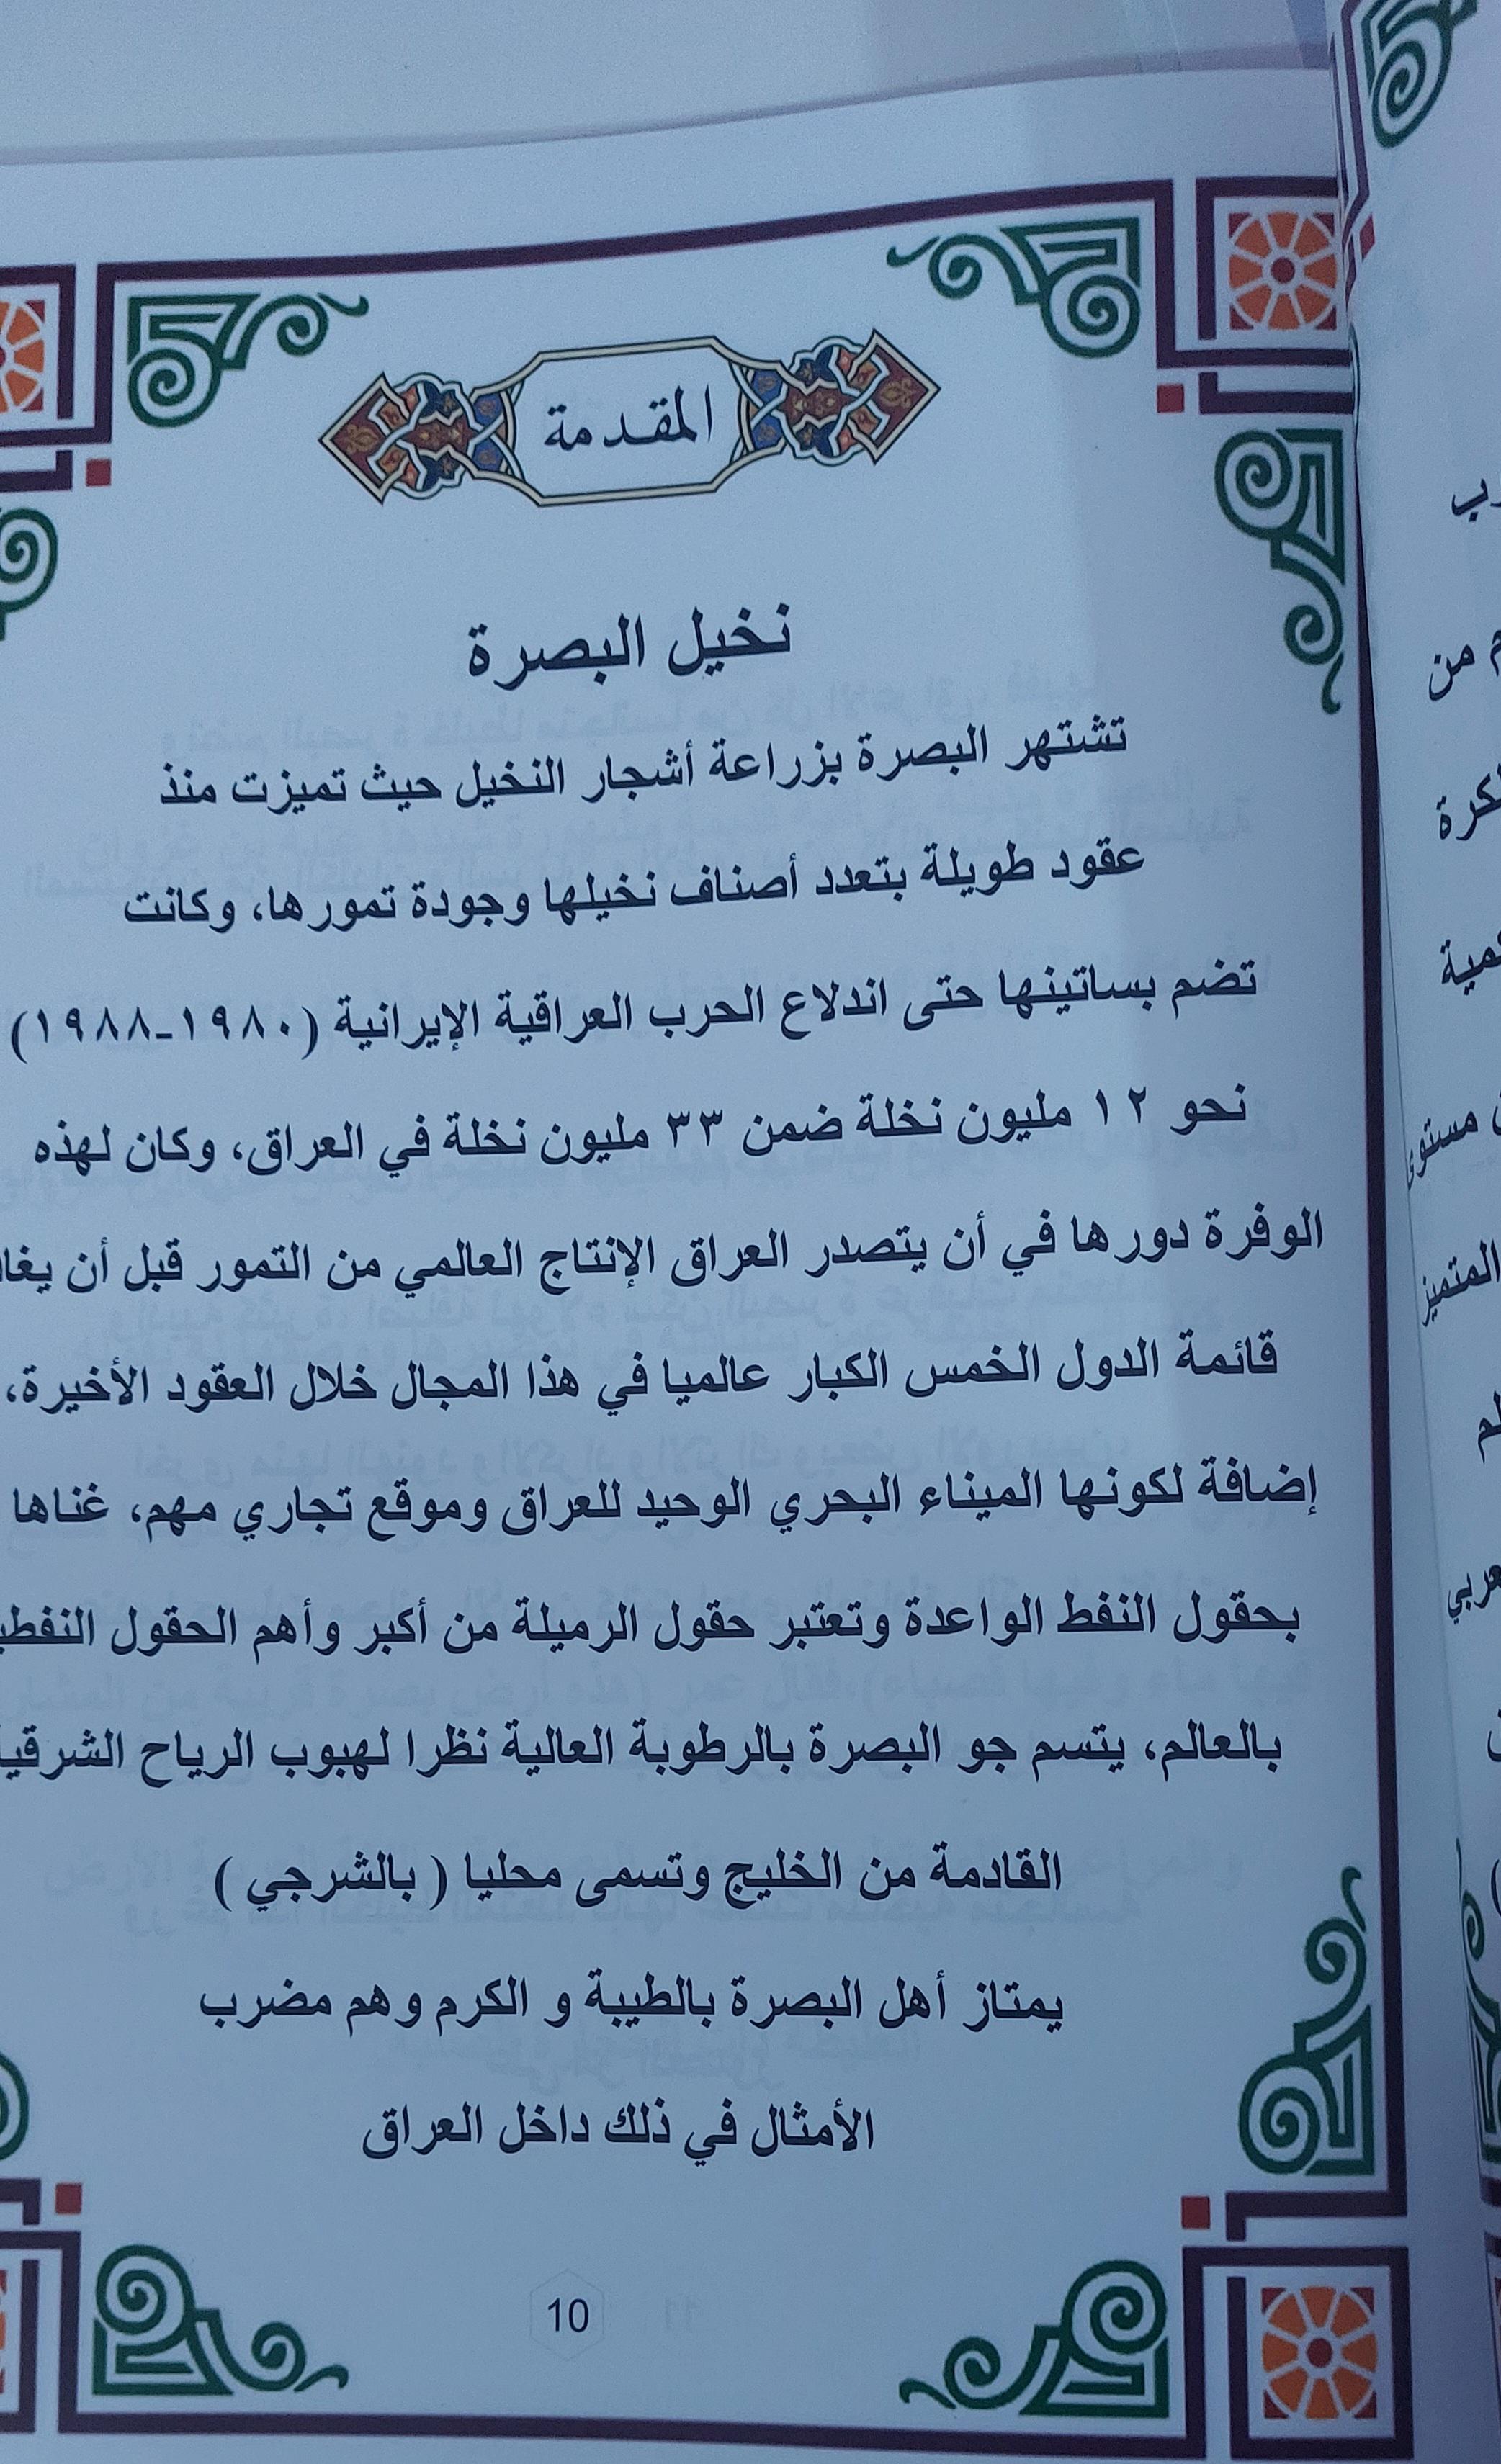 المقدمة
نخيل البصرة
تشتهر البصرة بزراعة أشجار النخيل حيث تميزت منذ
عقود طويلة بتعدد أصناف نخيلها وجودة تمورها، وكانت
تضم بساتينها حتى اندلاع الحرب العراقية الإيرانية (١٩٨٠-١٩٨٨)
نحو ١٢ مليون نخلة ضمن ٣٣ مليون نخلة في العراق، وكان لهذه
الوفرة دورها في أن يتصدر العراق الإنتاج العالمي من التمور قبل أن
قائمة الدول الخمس الكبار عالميا في هذا المجال خلال العقود الأخيرة،
إضافة لكونها الميناء البحري الوحيد للعراق وموقع تجاري مهم، غناها
بحقول النفط الواعدة وتعتبر حقول الرميلة من أكبر وأهم الحقول
بالعالم، يتسم جو البصرة بالرطوبة العالية نظرا لهبوب الرياح
القادمة من الخليج وتسمى محليا ( بالشرجي )
يمتاز أهل البصرة بالطيبة و الكرم وهم مضرب
الأمثال في ذلك داخل العراق
10
من
مستوى
المتميز